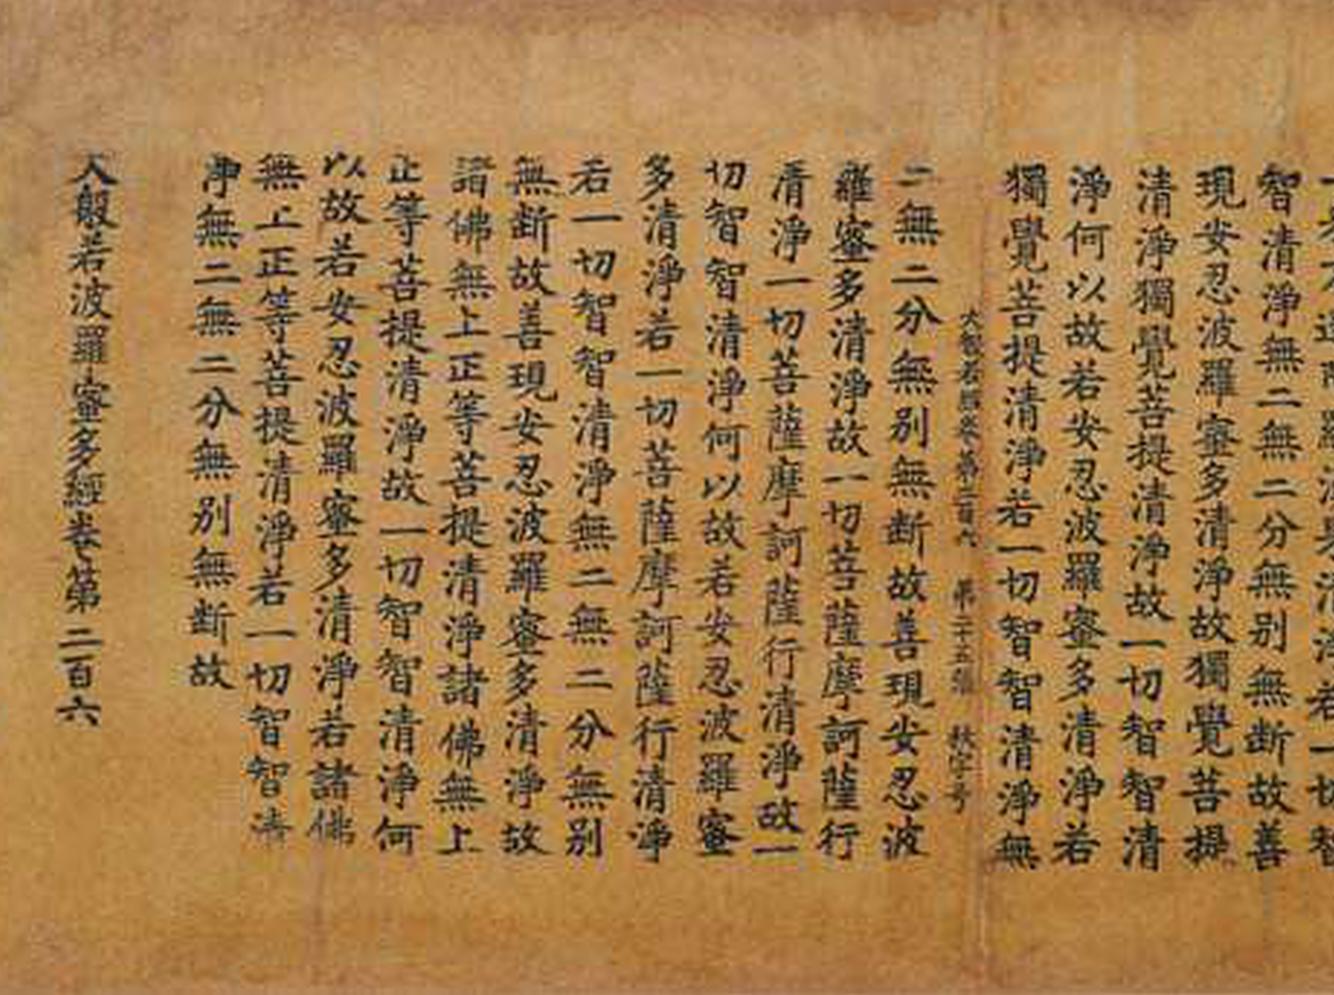 智清淨無二無二分無別無斷故善
現安忍波羅蜜多清淨故獨覺菩提
清淨獨覺菩提清淨故一切智智清
淨何以故若安忍波羅蜜多清淨若
獨覺菩提清淨若一切智智清淨無
大般若經卷第二百六 第二十五張 秋字号
二無二分無別無斷故善現安忍波
羅蜜多清淨故一切菩薩摩訶薩行
清淨一切菩薩摩訶薩行清淨故一
切智智清淨何以故若安忍波羅蜜
多清淨若一切菩薩摩訶薩行清淨
若一切智智清淨無二無二分無別
無斷故善現安忍波羅蜜多清淨故
諸佛無上正等菩提清淨諸佛無上
正等菩提清淨故一切智智清淨何
以故若安忍波羅蜜多清淨若諸佛
無上正等菩提清淨若一切智智清
淨無二無二分無別無斷故
大般若波羅蜜多經卷第二百六